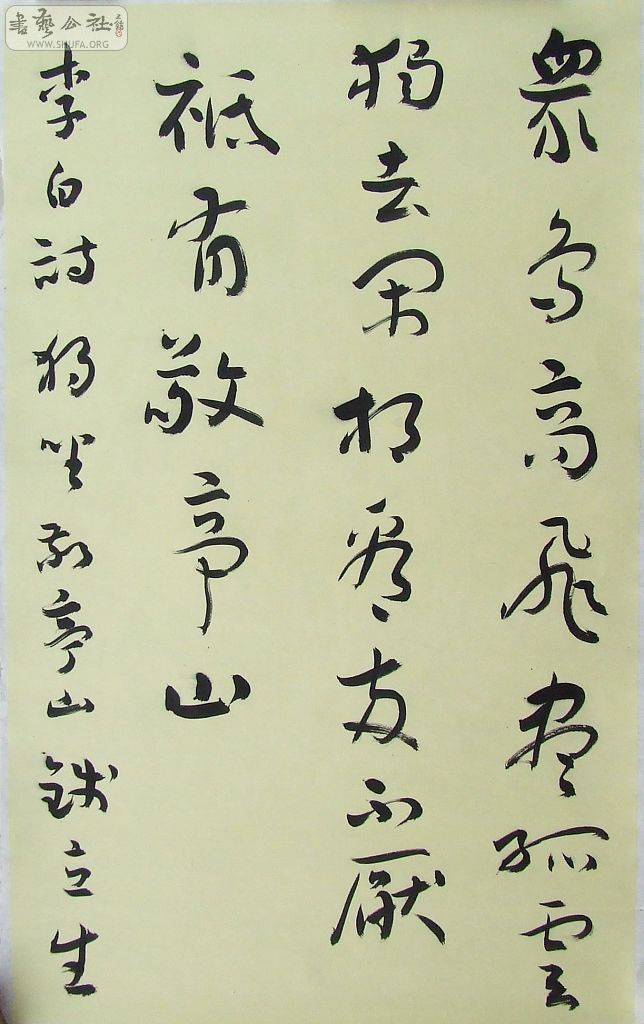 衆鳥高飛盡孤雲
獨去閑相看兩不厭
祇有敬亭山
李白詩獨坐敬亭山 錢立生
書藝公社
WWW.SHUFA.ORG